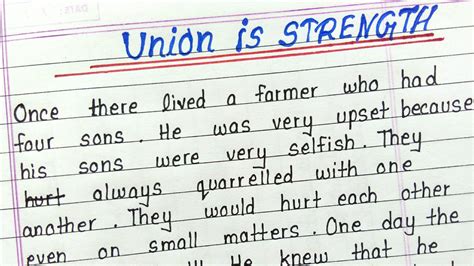 Union is STRENGTH
Once there lived a farmer who had
four sons. He was very upset because
his sons were very selfish. They
hurt always quarrelled with one
another. They would hurt each other
even on small matters. One day the
He knew that he